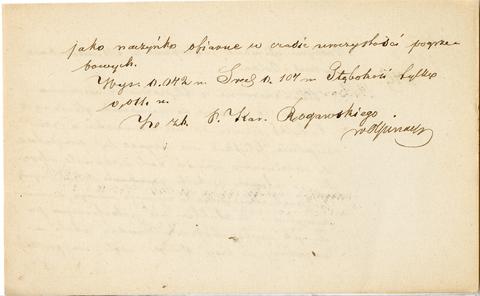 jako naczyńko ofiarne w czasie uroczystości pogrze-
bowych.
Wys. 0.072 m. Śred. 0.107 m Głębokość tylko
0,011. m.
Ze zb. P. Kar. Rogawskiego
w Ołpinach